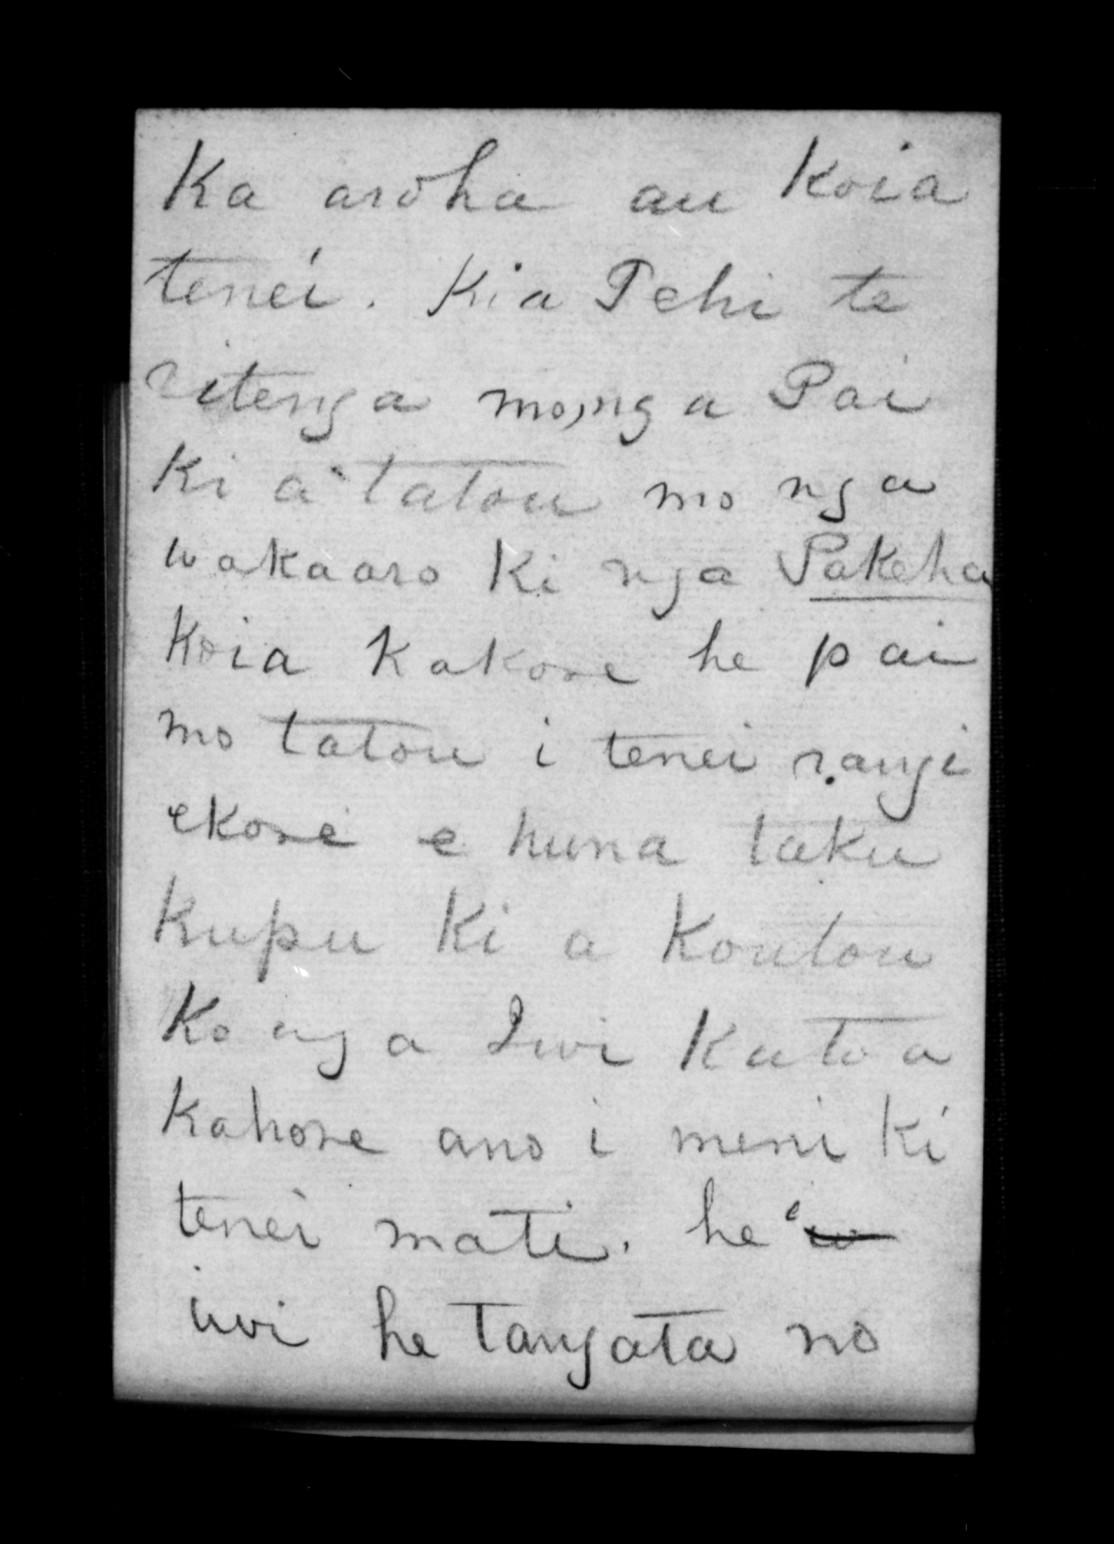 Ka aroha au Koia
tenei. Kia Pehi te
ritenga mo nga Pai
Ki a tatou mo nga
wakaaro Ki nga Pakeha
Koia Kakore he pai
mo tatou i tenei rangi
ekore e huna taku
Kupu Ki a Koutou
Ko nga Iwi Katoa
Kahore ano i meni ki
tenei mati. he
iwi he Tangata no